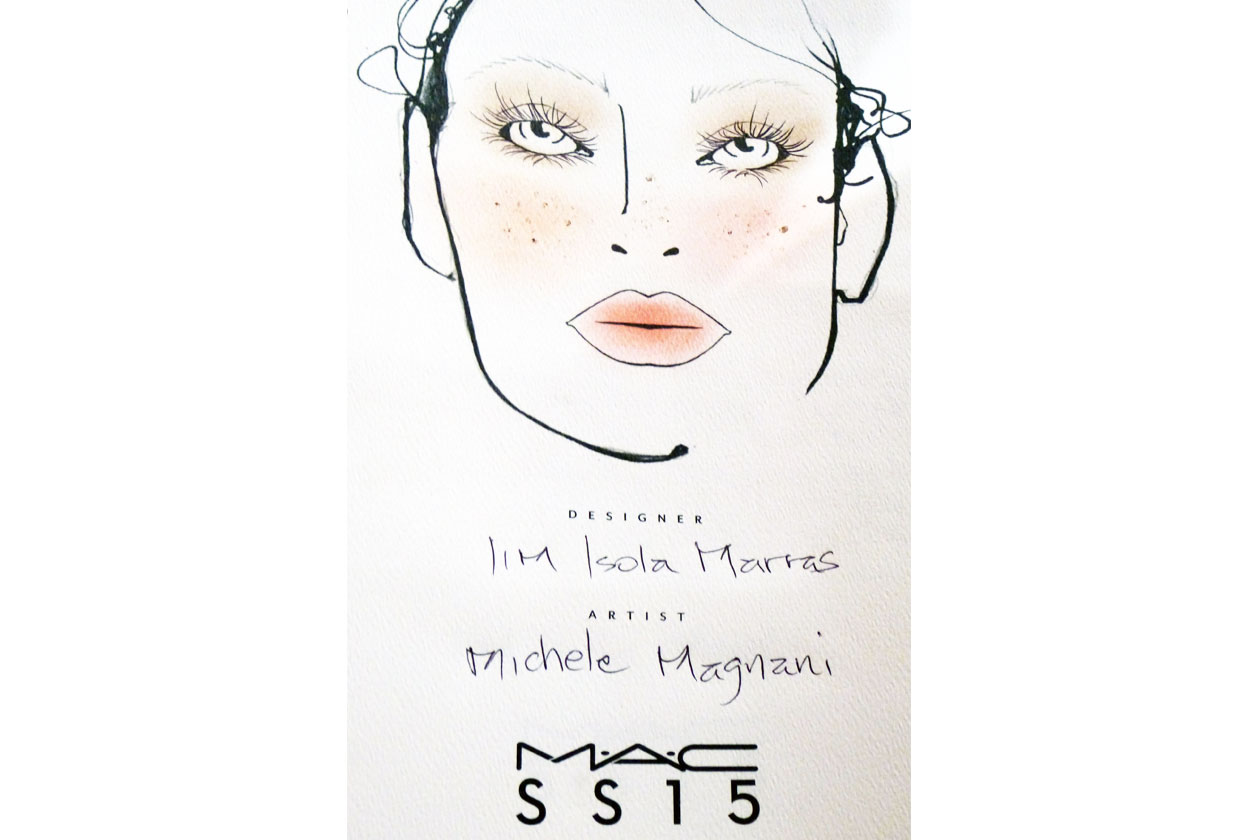 DESIGNER
IIM Isola Marras
ARTIST
Michele Magnani
M·A·C
SS15